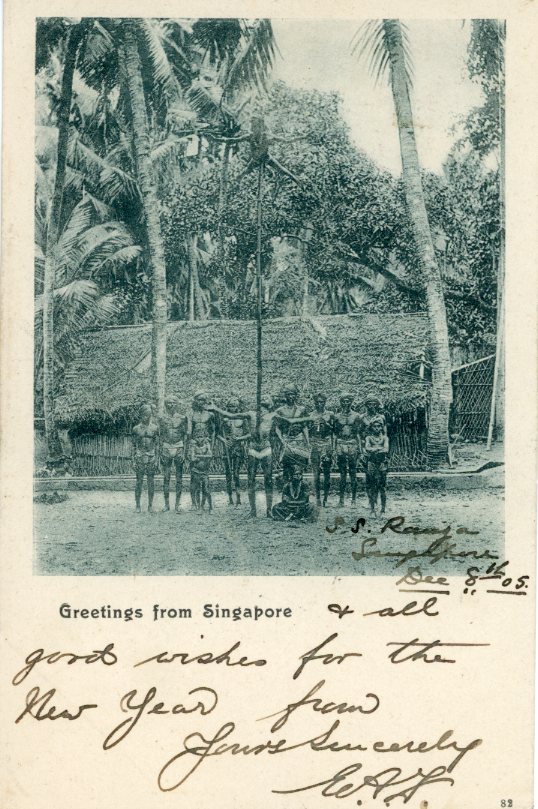 S. S. Ranja
Singapore
Dec 8th 05.
Greetings from Singapore & all
good wishes for the
New Year from
Yours Sincerely
82